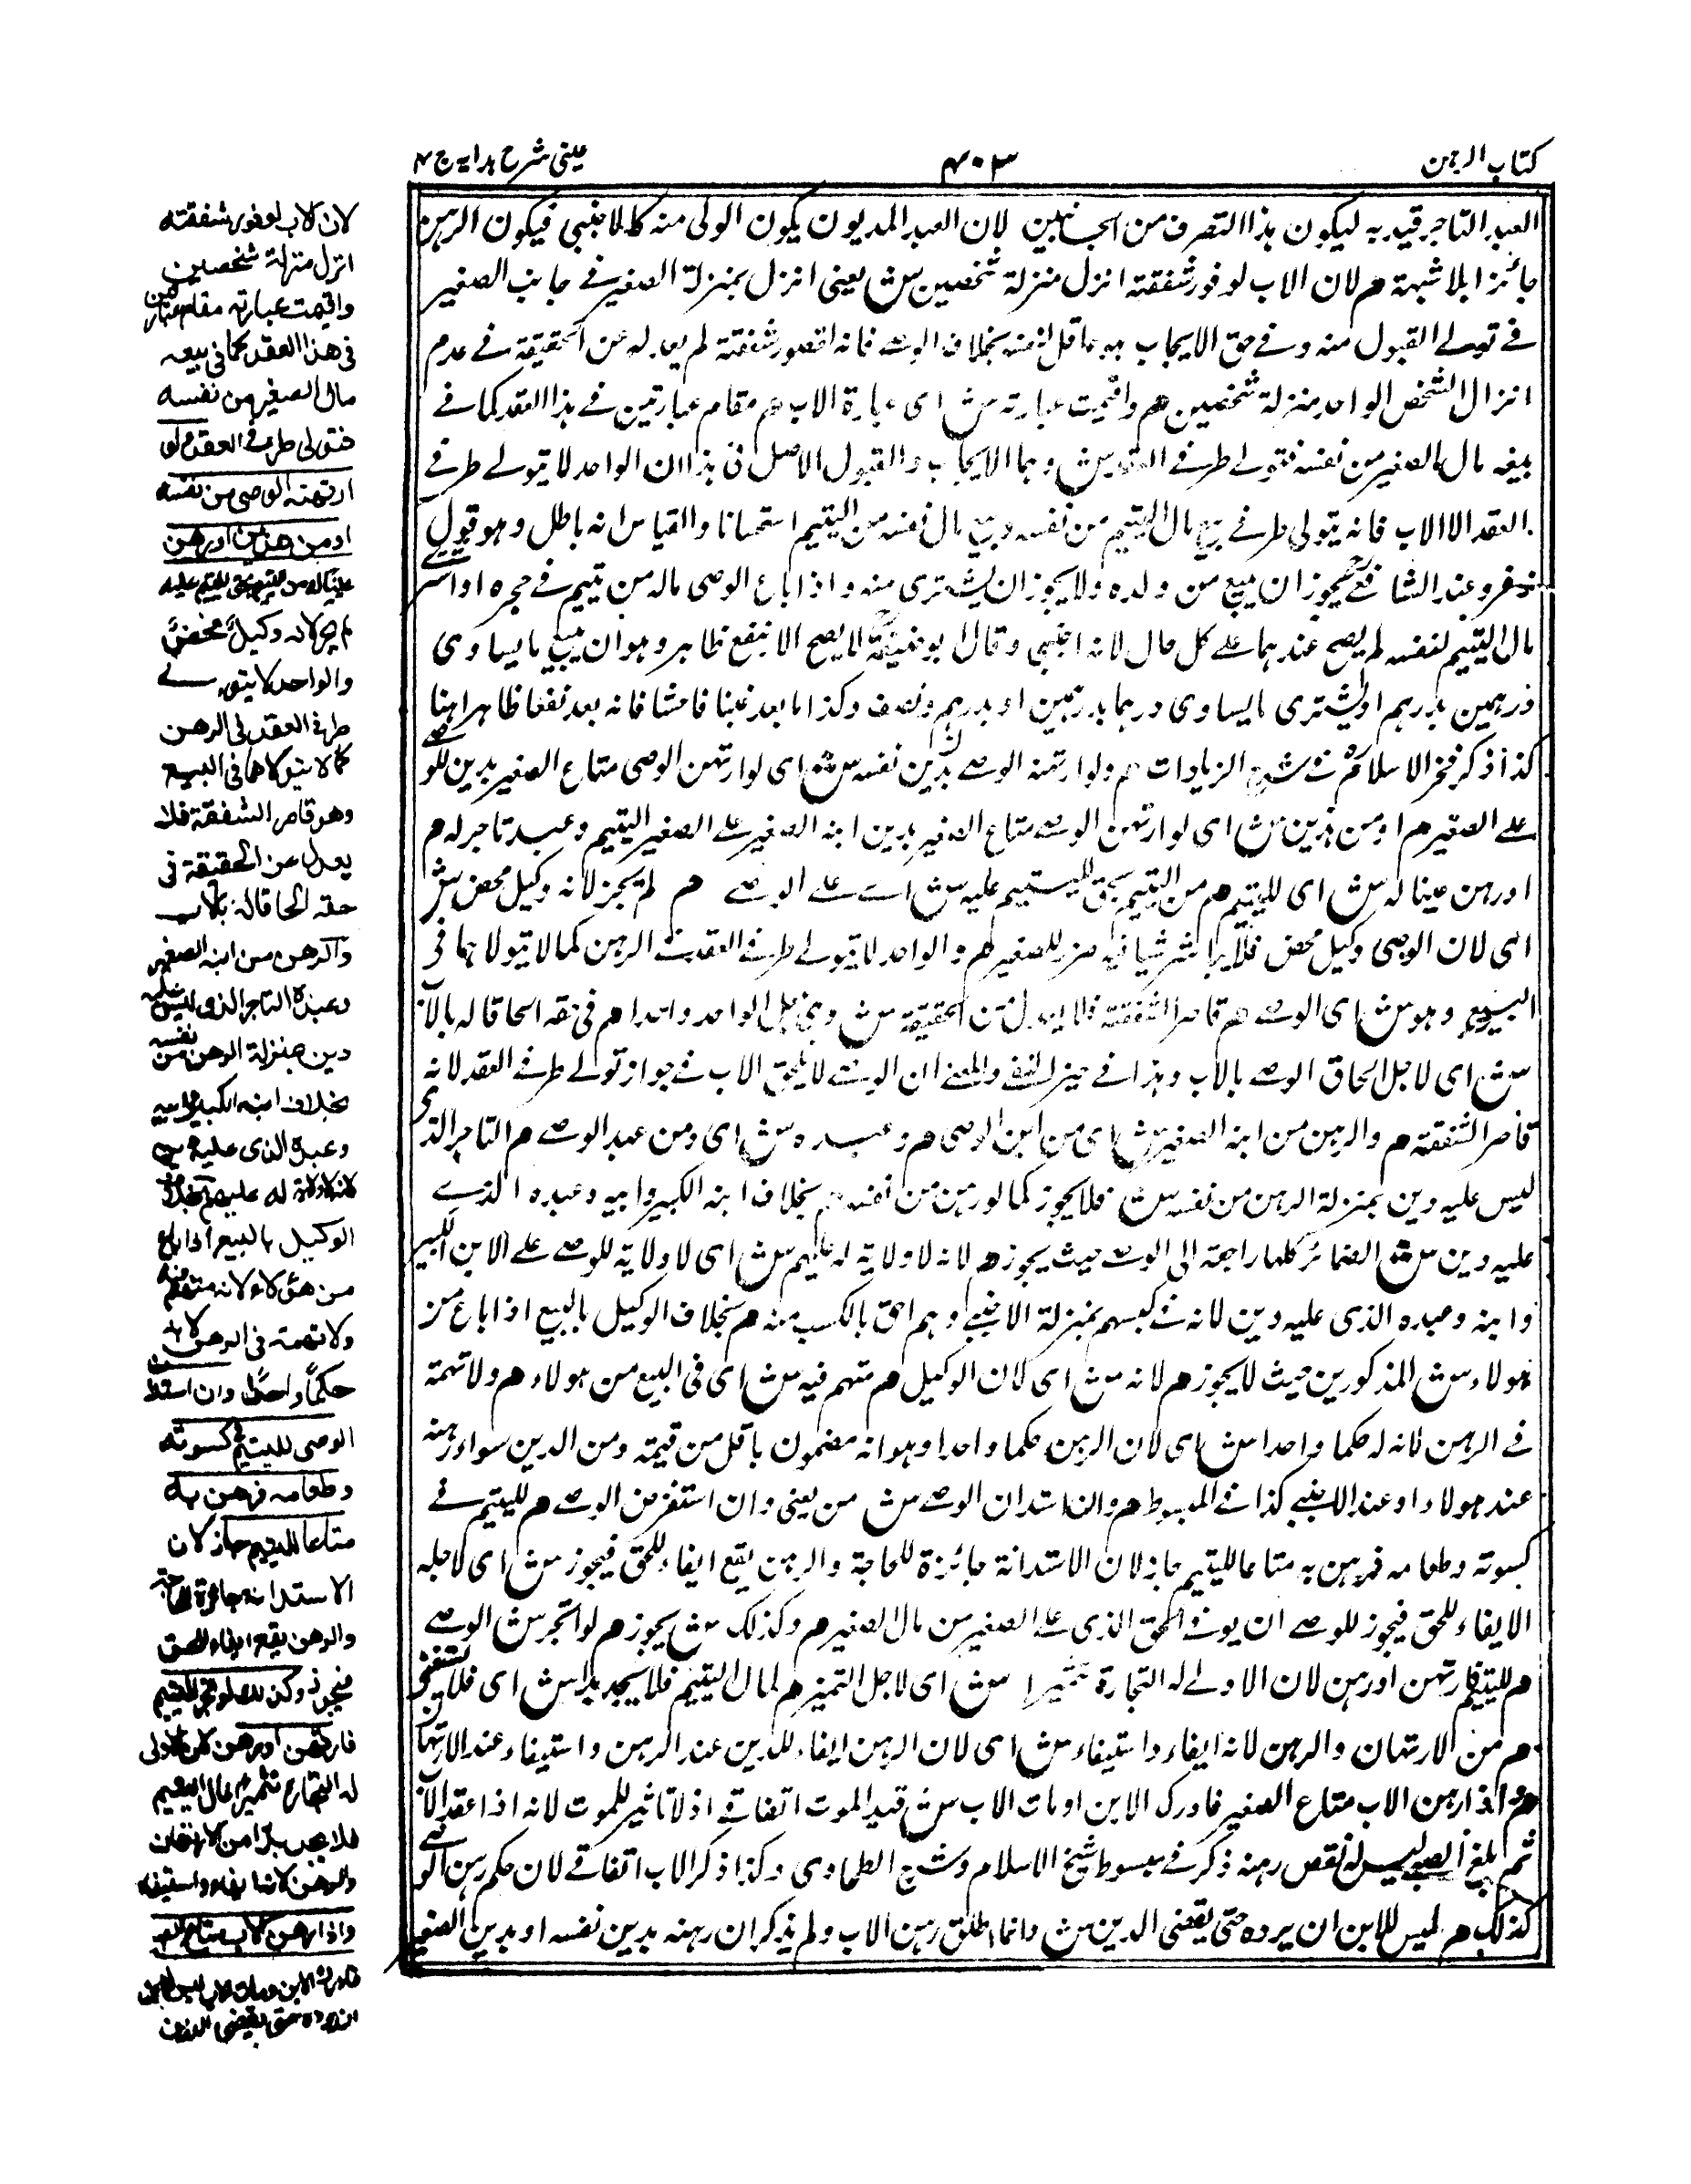 كتاب الرهن
٤٠٣
عينى شرح هدايه ج ٤
العبد التاجر قيد به ليكون هذا التصرف من الجانبين لان العبد المديون يكون المولى منه كالاجنبي فيكون الرهن
جائزا بلا شبهة م لان الاب لوفور شفقته انزل منزلة شخصين ش يعنى انزل بمنزلة الصغير في جانب الصغير
في تولى القبول منه وفي حق الايجاب هو عاقل لنفسه بخلاف الوصي فانه لقصور شفقته لم يعدل عن الحقيقة في عدم
انزال الشخص الواحد منزلة شخصين م واقيمت عبارته ش اى عبارة الاب م مقام عبارتين في هذا العقد كما في
بيعه مال الصغير من نفسه فتولى طرفي العقد ش وهما الايجاب والقبول الاصل فى هذا ان الواحد لا يتولى طرفي
العقد الا الاب فانه يتولى طرفي بيع مال اليتيم من نفسه وبيع مال نفسه من اليتيم استحسانا والقياس انه باطل وهو قول
زفر وعند الشافعي يجوز ان يبيع من ولده ولا يجوز ان يشترى منه واذا باع الوصى ماله من يتيم في حجره او اشترى
مال اليتيم لنفسه لم يصح عندهما على كل حال لانه اجنبى وقال ابو حنيفة لا يصح الا بنفع ظاهر وهو ان يبيع ما يساوى
درهمين بدرهم او يشترى ما يساوى درهما بدرهمين او بدرهم ونصف وكذا ما بعد غبنا فاحشا فانه يعد نفعا ظاهرا هنا
كذا ذكر فخر الاسلام في شرح الزيادات م ولو ارتهنه الوصي بدين نفسه ش اى لو ارتهن الوصى متاع الصغير بدين للوصي
على الصغير م او من هذين ش اى لو ارتهن الوصي متاع الصغير بدين ابنه الصغير على الصغير اليتيم وعبد تاجر له م
او رهن عينا له ش اى لليتيم م من اليتيم بحق لليتيم عليه ش اي على الوصي م لم يجز لانه وكيل محض ش
اى لان الوصى وكيل محض فلا يباشر شيا فيه ضرر للصغير م والواحد لا يتولى طرفي العقد في الرهن كما لا يتولاهما فى
البيع وهو ش اى الوصي م قاصر الشفقة فلا يعدل عن الحقيقة ش وهي جعل الواحد واحدا م فى حقه الحاقا له بالاب
ش اى لاجل الحاق الوصي بالاب وهذا في حيز النفي والمعنى ان الوصي لا يلحق الاب في جواز تولي طرفي العقد لانه
قاصر الشفقة م والرهن من ابنه الصغير ش اى من ابن الوصى م وعبده ش اى ومن عبد الوصي م التاجر الذى
ليس عليه دين بمنزلة الرهن من نفسه ش فلا يجوز كما لو رهن من نفسه م بخلاف ابنه الكبير وابيه وعبده الذي
عليه دين ش الضمائر كلها راجعة الى الوصي حيث يجوز م لانه لا ولاية له عليهم ش اى لا ولاية للوصي على الابن الكبير
وابنه وعبده الذى عليه دين لانه في كسبهم بمنزلة الاجنبي وهم احق بالكسب منه م بخلاف الوكيل بالبيع اذا باع من
هولاء ش المذكورين حيث لا يجوز م لانه ش اى لان الوكيل م متهم فيه ش اى فى البيع من هولاء م ولا تهمة
في الرهن لانه له حكما واحدا ش اى لان الرهن حكما واحدا وهو انه مضمون باقل من قيمته ومن الدين سواء رهنه
عند هولاء او عند الاجنبي كذا في المبسوط م وان استدان الوصي ش من يعنى وان استقرض الوصي م لليتيم في
كسوته وطعامه فرهن به متاعا لليتيم جاز لان الاستدانة جائزة للحاجة والرهن يقع ايفاء للحق فيجوز ش اى لاجله
الايفاء للحق فيجوز للوصي ان يوفي الحق الذى على الصغير من مال الصغير م وكذلك ش يجوز م لو اتجر ش الوصي
م لليتيم فارتهن او رهن لان الاولى له التجارة تثميرا ش اى لاجل التميز م لمال اليتيم فلا يجد بدا ش اى فلا يستغنى
م من الارتهان والرهن لانه ايفاء واستيفاء ش اى لان الرهن ايفاء للدين عند الرهن واستيفاء عند الارتهان
م واذا رهن الاب متاع الصغير فادرك الابن او مات الاب ش قيد الموت اتفاقي اذ لا تاثير للموت لانه اذا عقد الاب
ثم بلغ الصبي ليس له نقض رهنه ذكر في مبسوط شيخ الاسلام وشرح الطحاوى وكذا ذكر الاب اتفاقي لان حكم رهن الوصي
كذلك م ليس للابن ان يرده حتى يقضى الدين ش وانما اطلق رهن الاب ولم يذكر ان رهنه بدين نفسه او بدين الصغير
لان الاب لوفور شفقته
انزل منزلة شخصين
واقيمت عبارته مقام عبارتين
فى هذا العقد كما فى بيعه
مال الصغير من نفسه
فتولى طرفي العقد ولو
ارتهنه الوصى من نفسه
او من هذين او رهن
عينا له من اليتيم بحق لليتيم عليه
لم يجز لانه وكيل محض
والواحد لا يتولى
طرفي العقد فى الرهن
كما لا يتولاهما فى البيع
وهو قاصر الشفقة فلا
يعدل عن الحقيقة فى
حقه الحاقا له بالاب
والرهن من ابنه الصغير
وعبده التاجر الذى ليس عليه
دين بمنزلة الرهن من نفسه
بخلاف ابنه الكبير وابيه
وعبده الذى عليه دين
لانه لا ولاية له عليهم بخلاف
الوكيل بالبيع اذا باع
من هؤلاء لانه متهم فيه
ولا تهمة فى الرهن لان له
حكما واحدا وان استدان
الوصى لليتيم فى كسوته
وطعامه فرهن به
متاعا لليتيم جاز لان
الاستدانة جائزة للحاجة
والرهن يقع ايفاء للحق
فيجوز وكذلك لو اتجر لليتيم
فارتهن او رهن لان الاولى
له التجارة تثميرا لمال اليتيم
فلا يجد بدا من الارتهان
والرهن لانه ايفاء واستيفاء
واذا رهن الاب متاع الصغير
فادرك الابن ومات الاب ليس للابن
ان يرده حتى يقضى الدين